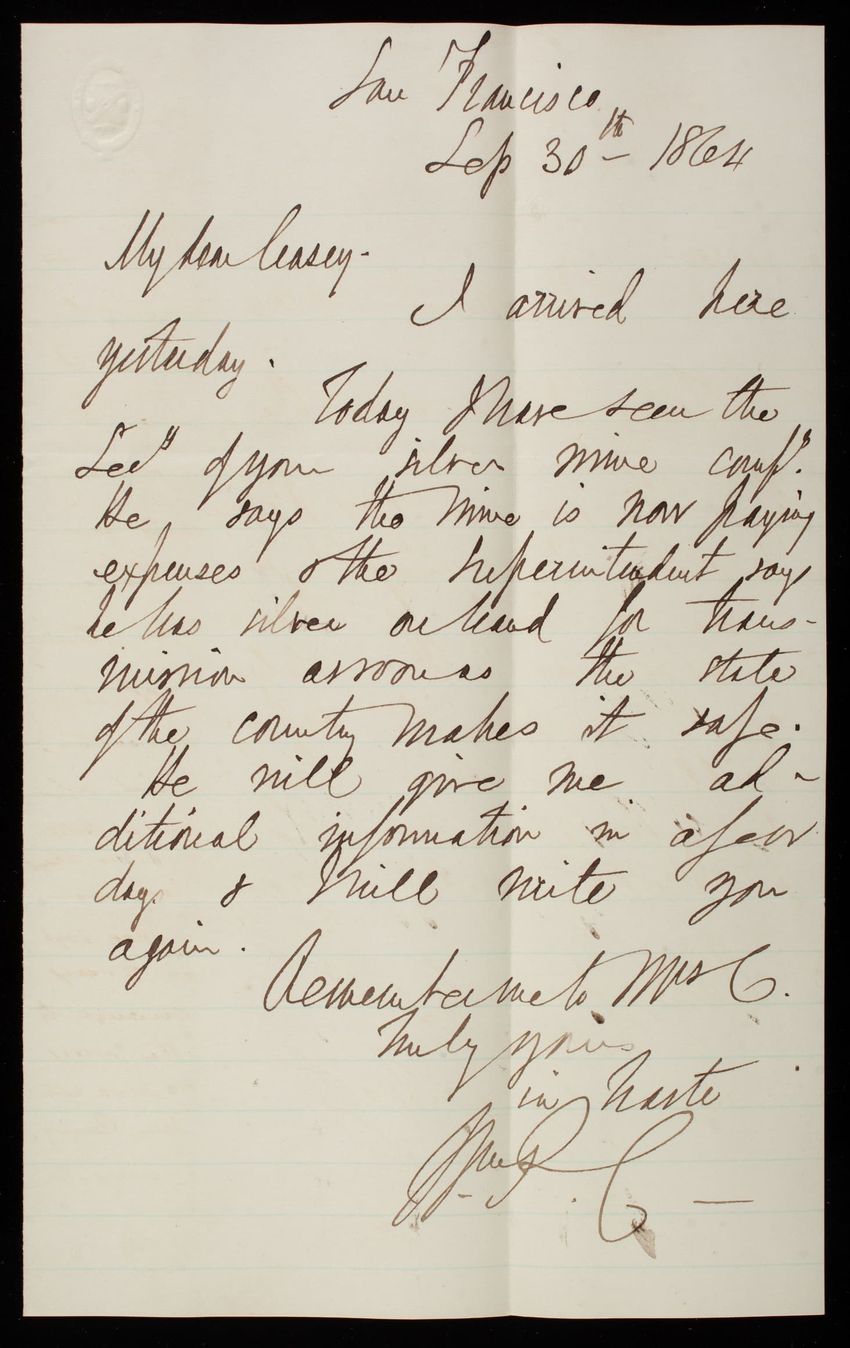 San Francisco
Sep 30th 1864
My dear Casey -
I arrived here
yesterday.
Today I have seen the
Secy of your silver mine compy.
He says the mine is now paying
expenses & the Superintendent says
he has silver on hand for trans-
mission as soon as the state
of the country makes it safe.
He will give me ad-
ditional information in a few
days & I will write you
again.
Remember me to Mrs C.
Truly yours
in haste